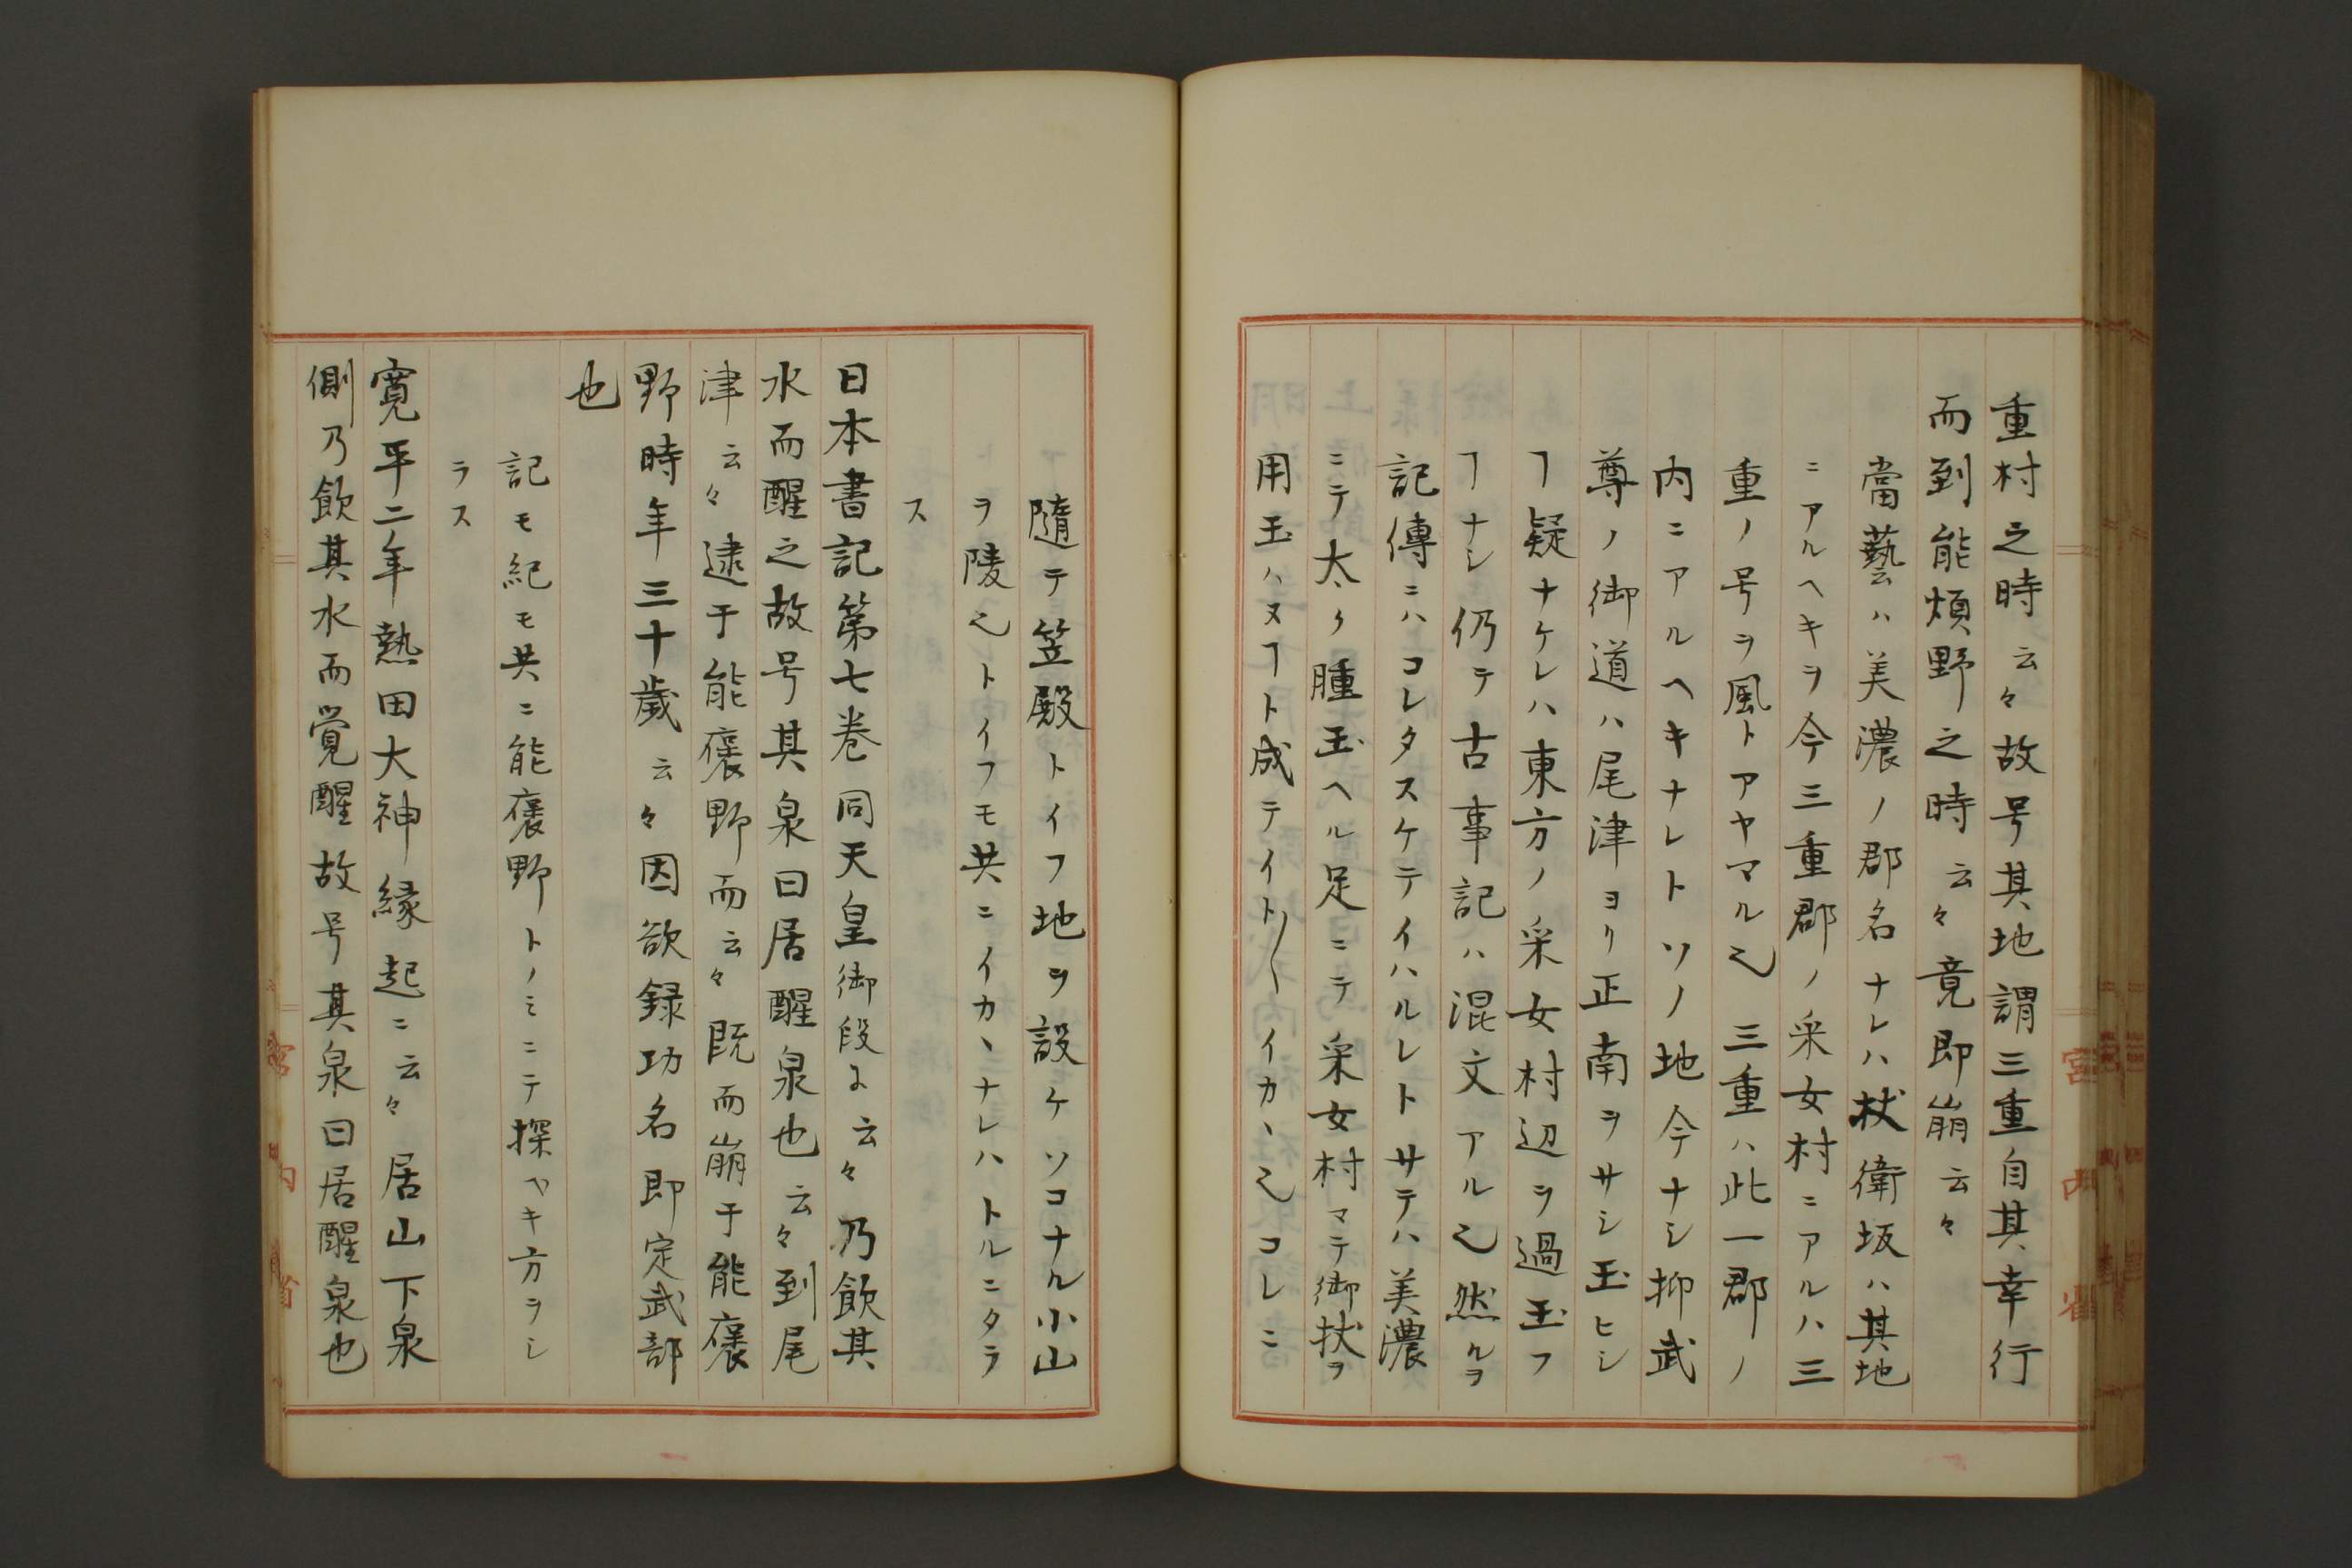 重村之時云々故号其地謂三重自其幸行
而到能煩野之時云々竟即崩云々
當藝ハ美濃ノ郡名ナレハ杖衝坂ハ其地
ニアルヘキヲ今三重郡ノ采女村ニアルハ三
重ノ号ヲ風トアヤマル也三重ハ此一郡ノ
内ニアルヘキナレトソノ地今ナシ抑武
尊ノ御道ハ尾津ヨリ正南ヲサシ玉ヒシ
ヿ疑ナケレハ東方ノ采女村辺ヲ過玉フ
ヿナシ仍テ古事記ハ混文アル也然ルヲ
記傳ニハコレタスケテイハルレトサテハ美濃
ニテ太ク腫玉ヘル足ニテ采女村マテ御杖ヲ
用玉ハヌヿト成テイト〳〵イカヽ也コレニ
隨テ笠殿トイフ地ヲ設ケソコナル小山
ヲ陵也トイフモ共ニイカヽナレハトルニタラ
ス
日本書記第七巻同天皇御段ニ云々乃飲其
水而醒之故号其泉曰居醒泉也云々到尾
津云々逮于能褒野而云々既而崩于能褒
野時年三十歳云々因欲録功名即定武部
也
記モ紀モ共ニ能褒野トノミニテ探ヘキ方ヲシ
ラス
寛平二年熱田大神縁起ニ云々居山下泉
側乃飲其水而覚醒故号其泉曰居醒泉也
宮内省